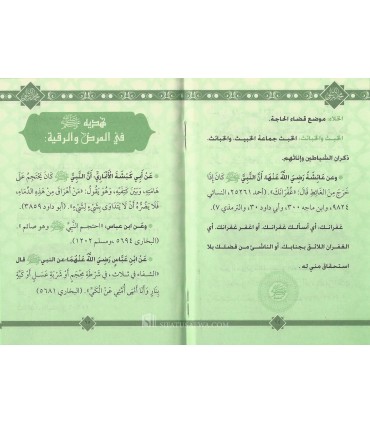 الخلاء: موضع قضاء الحاجة.
الخبث والخبائث: الخبث جماعة الخبيث، والخبائث:
ذكران الشياطين وإناثهم.
* وعن عَائِشَةَ رَضِيَ اللَّهُ عَنْهَا: أَنَّ النَّبِيَّ ﷺ كَانَ إِذَا
خَرَجَ مِنَ الغَائِطِ قَالَ: «غُفْرَانَكَ». (أحمد ٢٥٢٦١، النسائي
٩٨٢٤، وابن ماجه ٣٠٠، وأبي داود ٣٠، والترمذي ٧).
غفرانك: أي أسألك غفرانك، أو اغفر غفرانك، أي
الغفران اللائق بجنابك، أو الناشئ من فضلك بلا
استحقاق مني له.
هديه ﷺ
في المرض والرقية:
* عَنْ أَبِي كَبْشَةَ الأَنْمَارِيِّ: أَنَّ النَّبِيَّ ﷺ كَانَ يَحْتَجِمُ عَلَى
هَامَتِهِ، وَبَيْنَ كَتِفَيْهِ، وَهُوَ يَقُولُ: «مَنْ أَهْرَاقَ مِنْ هَذِهِ الدِّمَاءِ،
فَلَا يَضُرُّهُ أَنْ لَا يَتَدَاوَى بِشَيْءٍ لِشَيْءٍ». (أبو داود ٣٨٥٩)
* وعَنِ ابن عباس: «احتجم النَّبِيُّ ﷺ وهو صائم».
(البخاري ٥٦٩٤، ومسلم ١٢٠٢)
* عَنْ ابْنِ عَبَّاسٍ رَضِيَ اللَّهُ عَنْهُمَا عن النبي ﷺ قال:
«الشفاء في ثلاث: فِي شَرْطَةِ مِحْجَمٍ أَوْ شَرْبَةِ عَسَلٍ أَوْ كَيَّةٍ
بِنَارٍ، وَأَنَا أَنْهَى أُمَّتِي عَنْ الْكَيِّ». (البخاري ٥٦٨١)